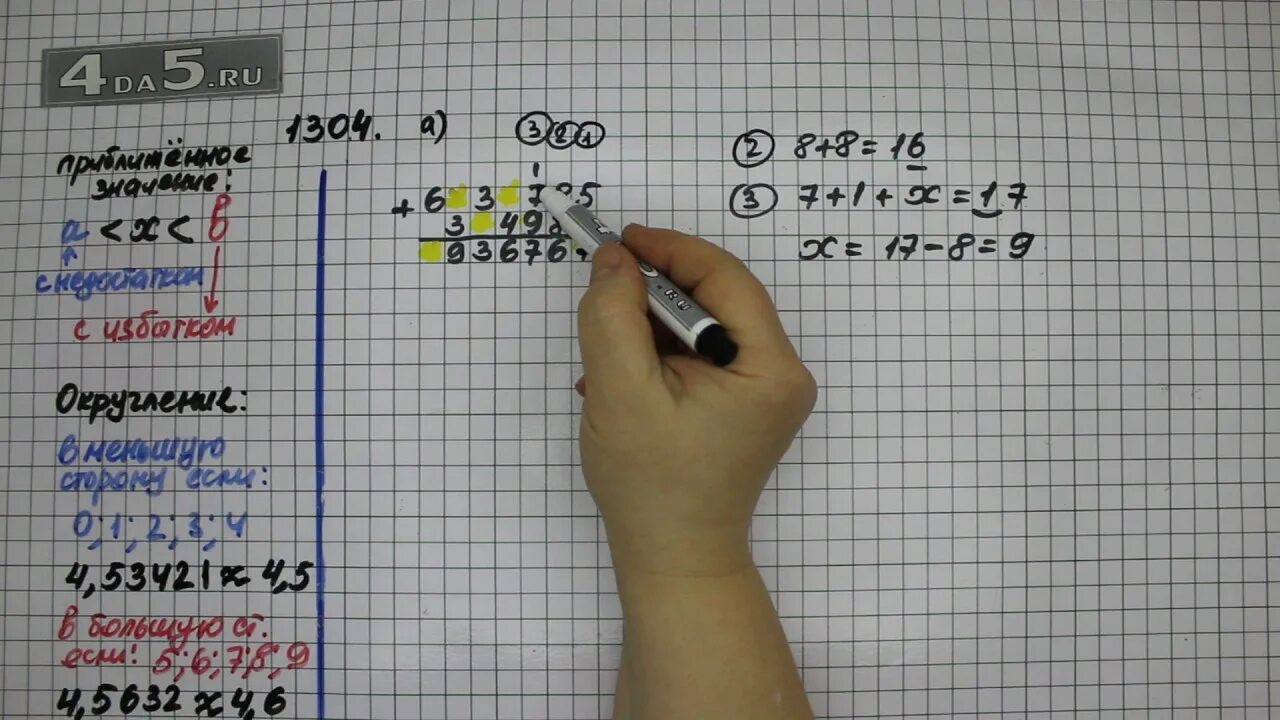 4DA5.RU
1304. а) 3 2 1
приближённое
значение:
a < x < b
с недостатком
с избытком
Округление:
в меньшую
сторону если:
0; 1; 2; 3; 4
4,53421 ≈ 4,5
в большую ст.
если: 5; 6; 7; 8; 9
4,5632 ≈ 4,6
1
+ 6 3 7 5
3 4 9 8
9 3 6 7 6
2 8+8=16
3 7+1+x=17
x=17-8=9